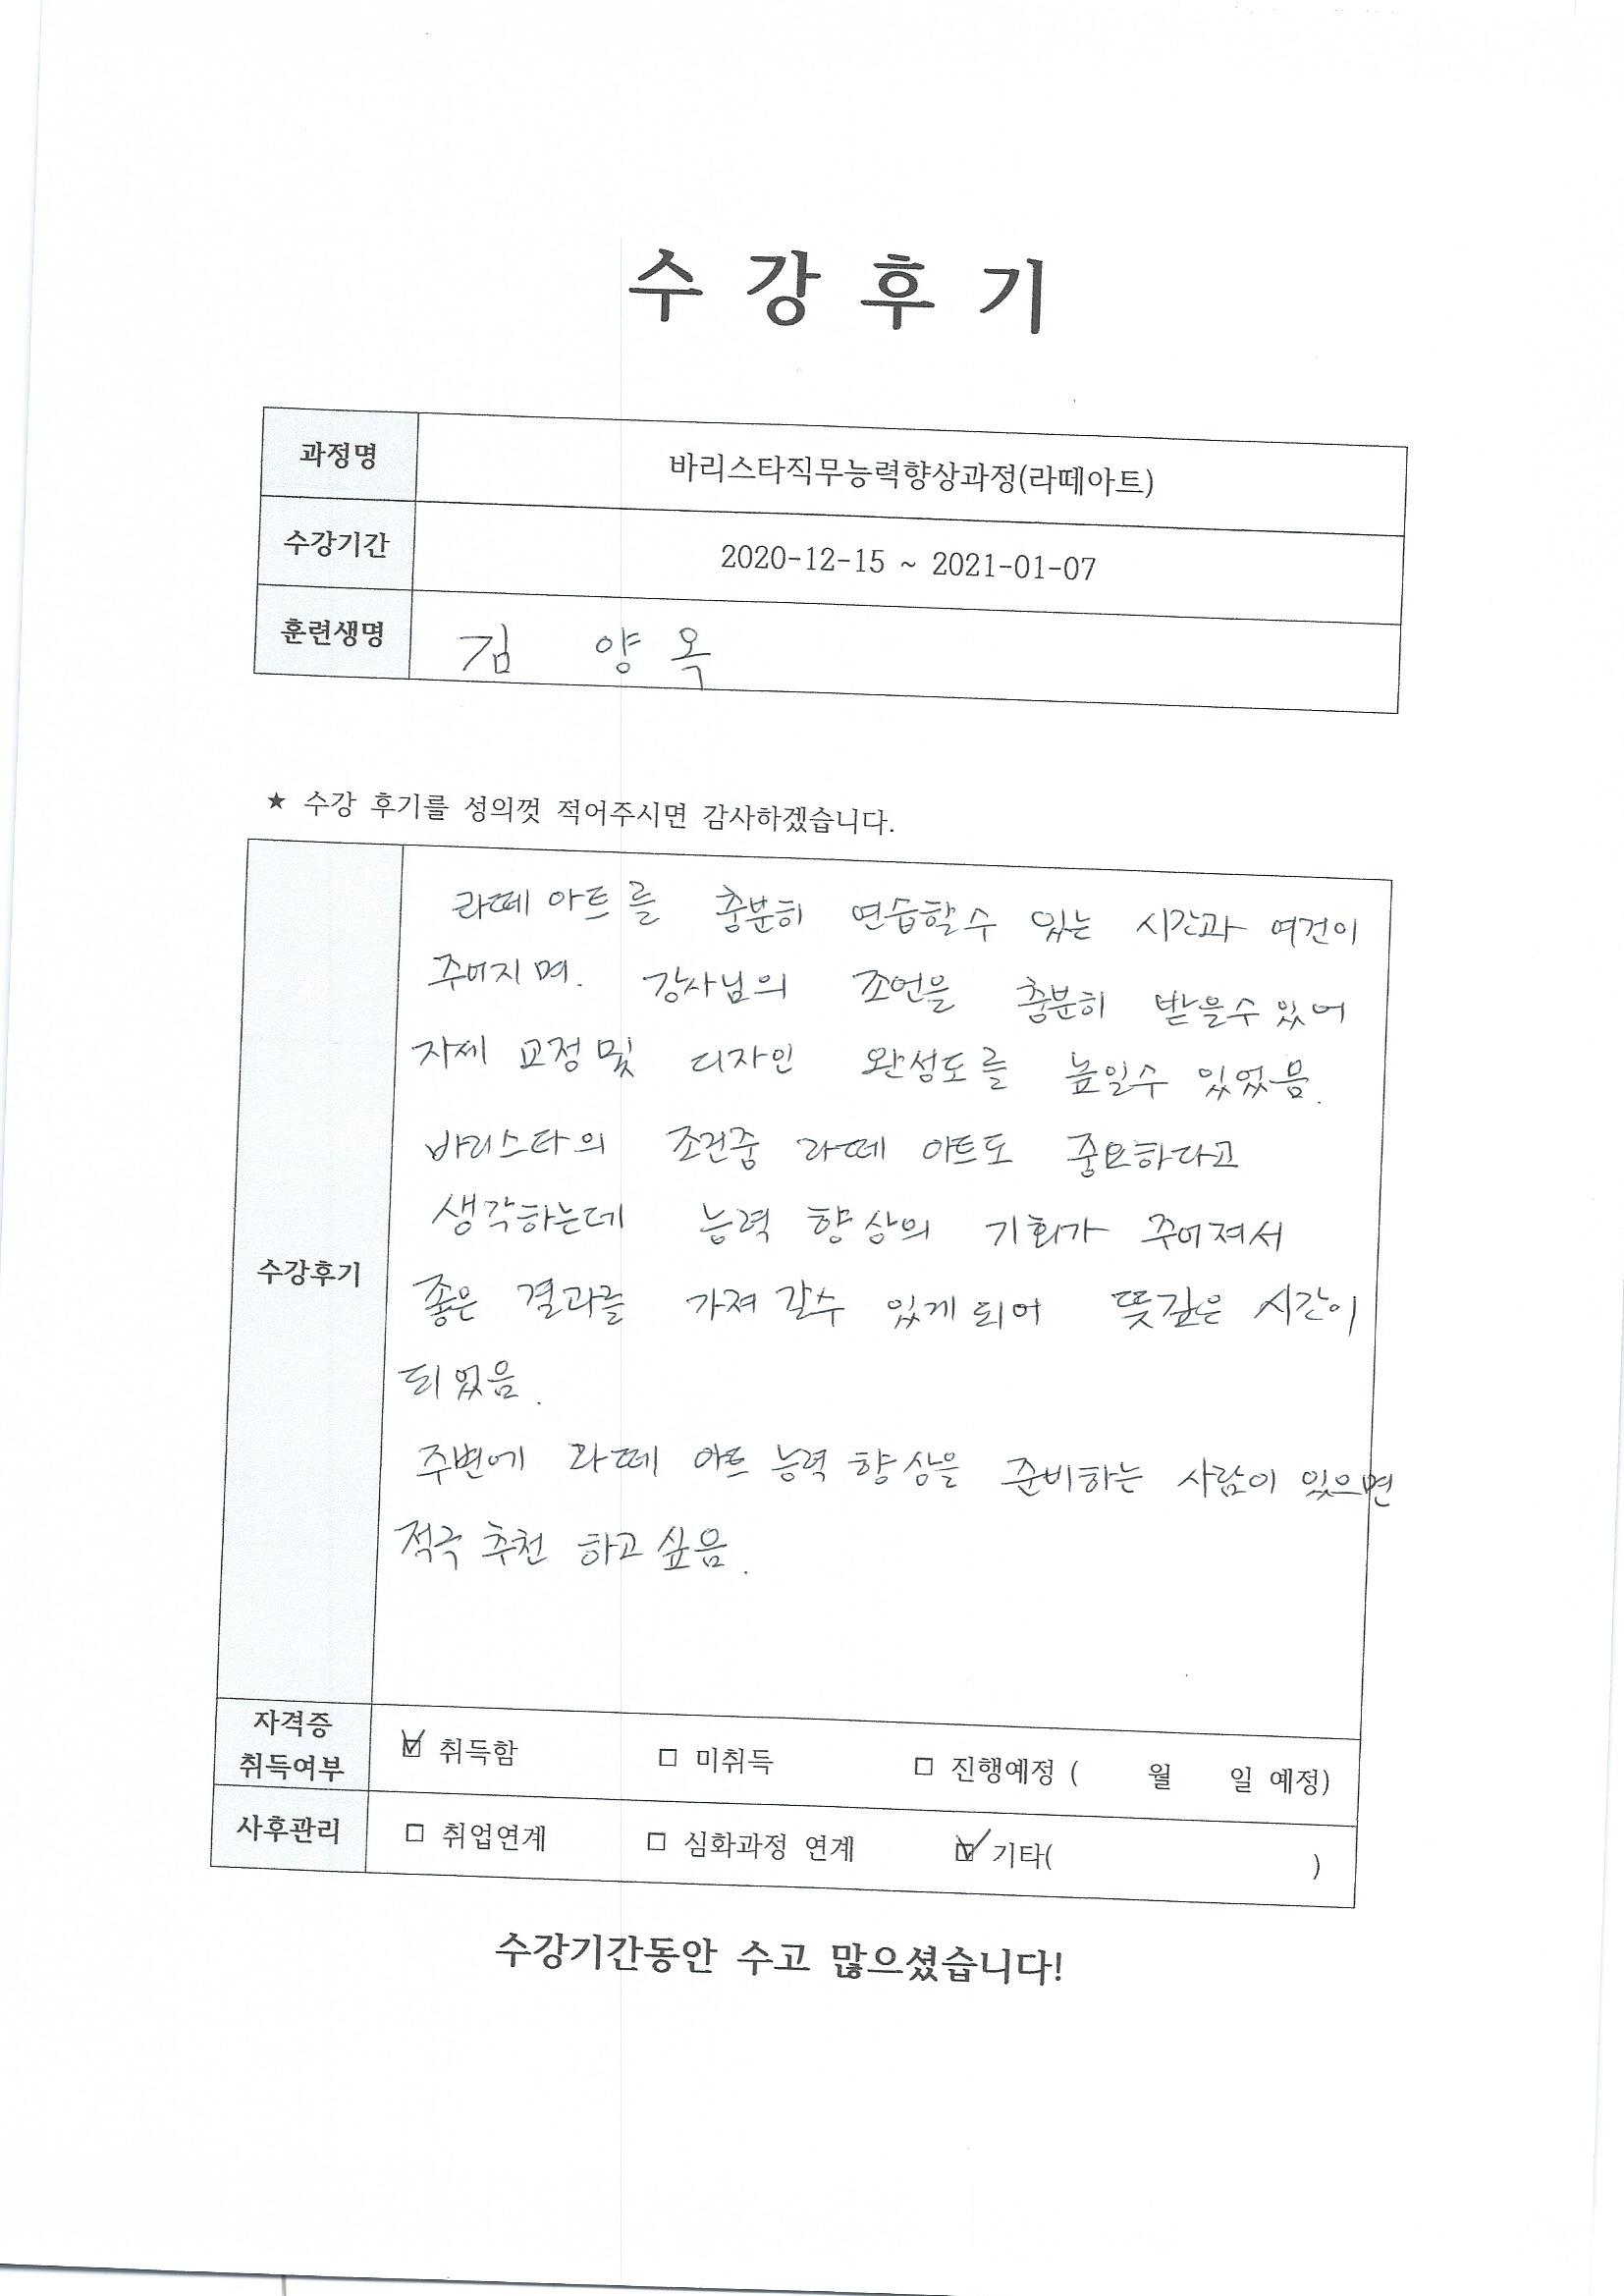 수 강 후 기
과정명 바리스타직무능력향상과정(라떼아트)
수강기간 2020-12-15 ~ 2021-01-07
훈련생명 김 양 옥
★ 수강 후기를 성의껏 적어주시면 감사하겠습니다.
라떼 아트를 충분히 연습할수 있는 시간과 여건이
주어지며. 강사님의 조언을 충분히 받을수 있어
자세 교정 및 디자인 완성도를 높일수 있었음.
바리스타의 조건중 라떼 아트도 중요하다고
생각하는데 능력 향상의 기회가 주어져서
수강후기
좋은 결과를 가져 갈수 있게 되어 뜻깊은 시간이
되었음.
주변에 라떼 아트 능력 향상을 준비하는 사람이 있으면
적극 추천 하고 싶음.
자격증
취득여부
☑ 취득함 □ 미취득 □ 진행예정 ( 월 일 예정)
사후관리 □ 취업연계 □ 심화과정 연계 ☑ 기타( )
수강기간동안 수고 많으셨습니다!